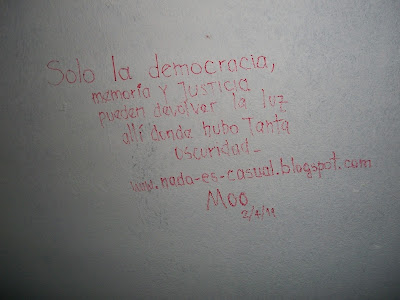 Solo la democracia,
memoria y JUSTICIA
pueden devolver la luz
allí donde hubo Tanta
oscuridad_
www.nada-es-casual.blogspot.com
Moo
2/4/11